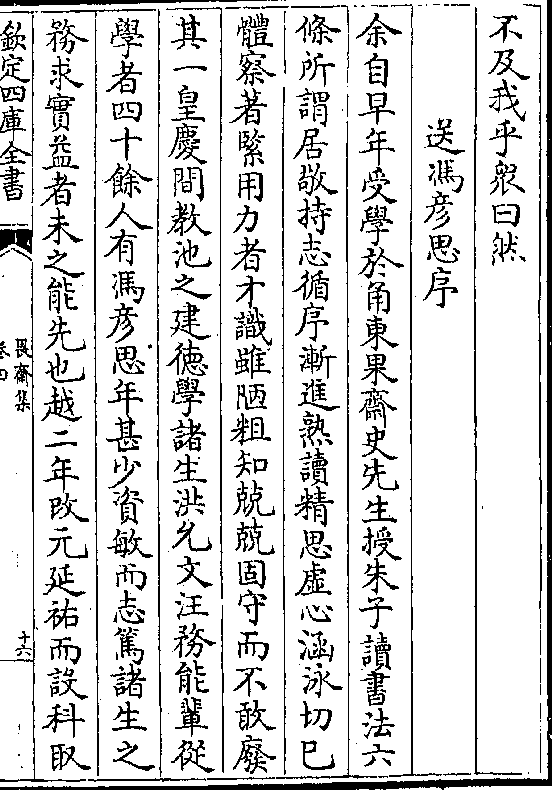 不及我乎衆曰然
送馮彦思序
余自早年受學於甬東果齋史先生授朱子讀書法六
條所謂居敬持志循序漸進熟讀精思虛心涵泳切已
體察著緊用力者才識雖陋粗知兢兢固守而不敢廢
其一皇慶間教池之建德學諸生洪允文汪務能輩從
學者四十餘人有馮彦思年甚少資敏而志篤諸生之
務求實益者未之能先也越二年改元延祐而設科取
欽定四庫全書
畏齋集
卷四
十六